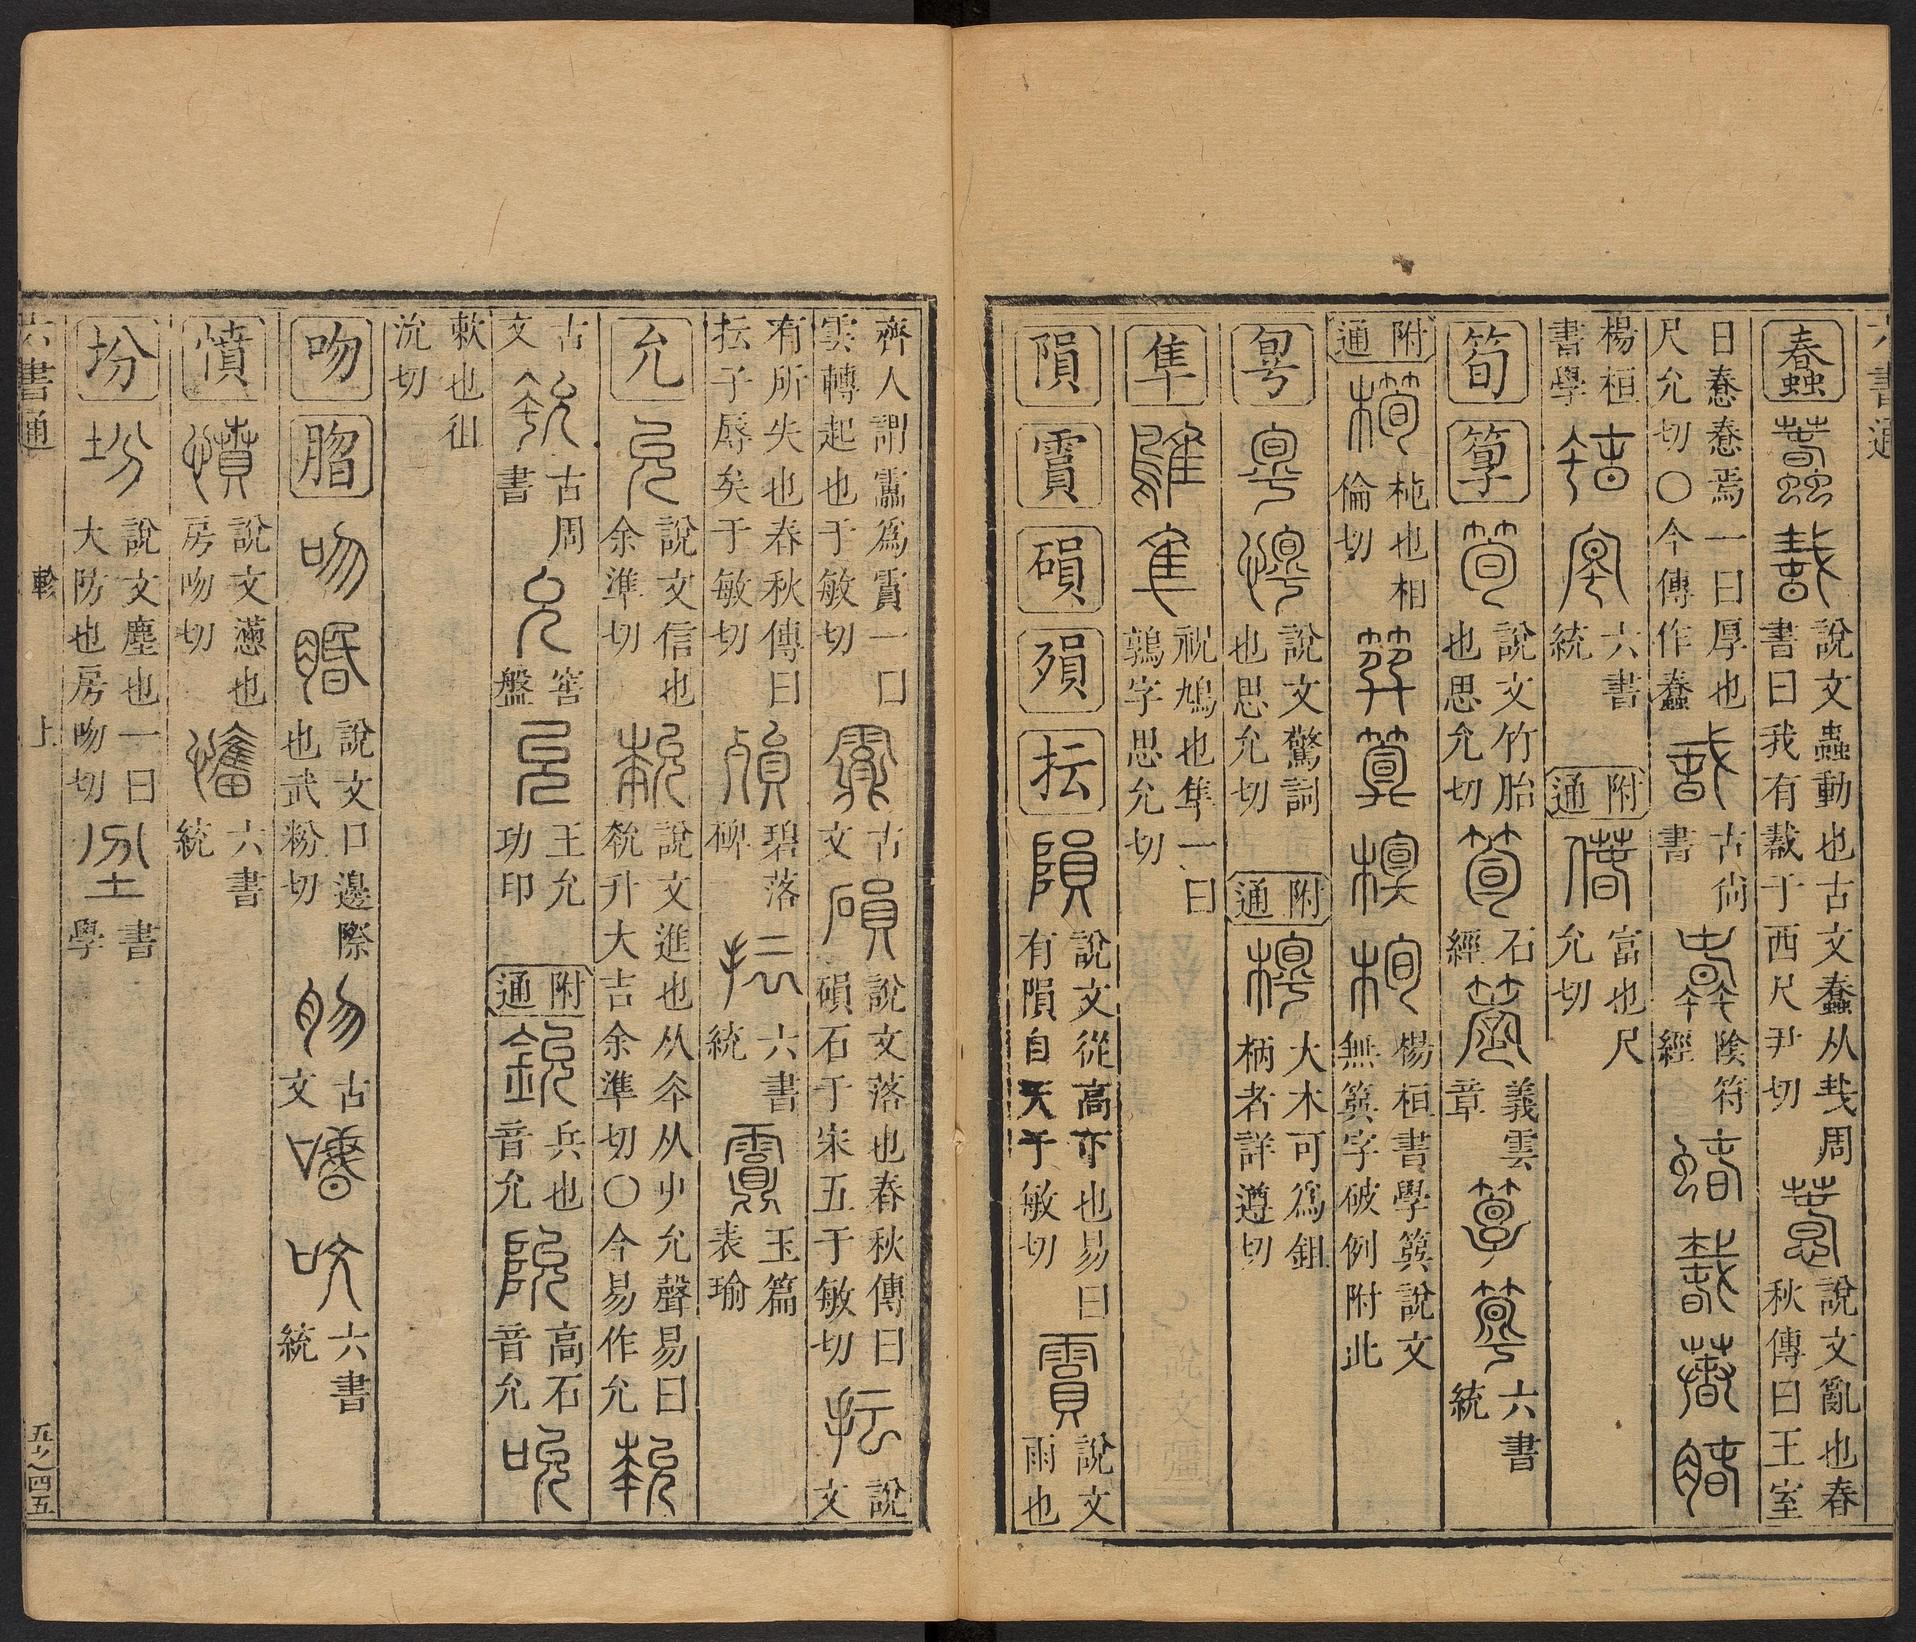 六書通
蠢
說文蟲動也古文蠢从𢦏周
書曰我有𢧵于西尺尹切
說文亂也春
秋傳曰王室
日惷惷焉一曰厚也
尺允切○今傳作蠢
古尚
書
陰符
經
楊桓
書學
六書
統
附通
富也尺
允切
筍 箰
說文竹胎
也思允切
石
經
義雲
章
六書
統
附通
杶也相
倫切
楊桓書學簨說文
無簨字破例附此
㝁
說文驚詞
也思允切
附通
大木可爲鉏
柄者詳遵切
隼
祝鳩也隼一曰
鶉字思允切
隕 霣 磒 殞 抎
說文從高下也易曰
有隕自天于敏切
說文
雨也
齊人謂靁爲霣一曰
雲轉起也于敏切
古
文
說文落也春秋傳曰
磒石于宋五于敏切
說
文
有所失也春秋傳曰
抎子辱矣于敏切
碧落
碑
六書
統
玉篇
表瑜
允
說文信也
余準切
說文進也从夲从屮允聲易曰
㽙升大吉余準切○今易作允
古
文
古周
書
窖
盤
王允
功印
附通
兵也
音允
高石
音允
欶也徂
沇切
吻 脗
說文口邊際
也武粉切
古
文
六書
統
憤
說文懣也
房吻切
六書
統
坋
說文塵也一曰
大防也房吻切
書
學
六書通
軫
上
五之四五